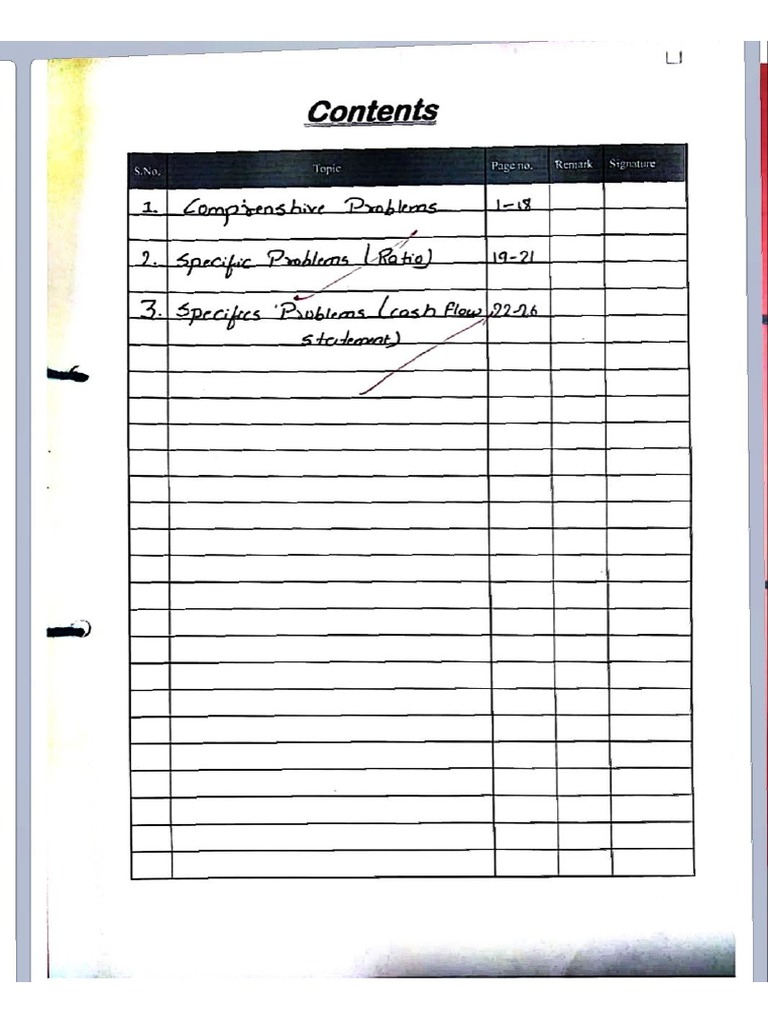 Contents
S.No. Topic Page no. Remark Signature
1. Comprenshive Problems 1-18
2. Specific Problems (Ratio) 19-21
3. Specifics Problems (cash flow 22-26
statement)